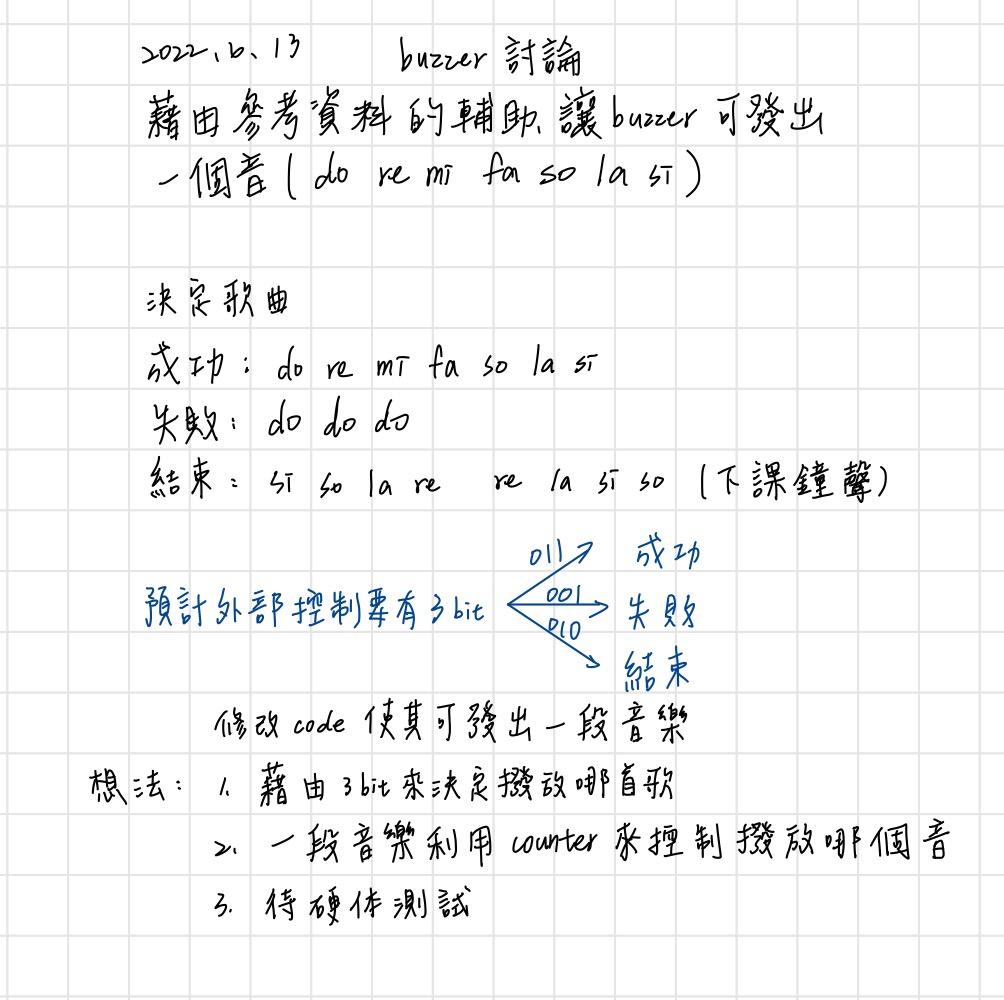 2022、6、13 buzzer 討論
藉由參考資料的輔助、讓buzzer 可發出
一個音(do re mi fa so la si)
決定歌曲
成功: do re mi fa so la si
失敗: do do do
結束: si so la re re la si so (下課鐘聲)
預計外部控制要有3 bit
011 成功
001 失敗
010 結束
修改code 使其可發出一段音樂
想法: 1. 藉由3bit來決定撥放哪首歌
2. 一段音樂利用 counter 來控制撥放哪個音
3. 待硬体測試